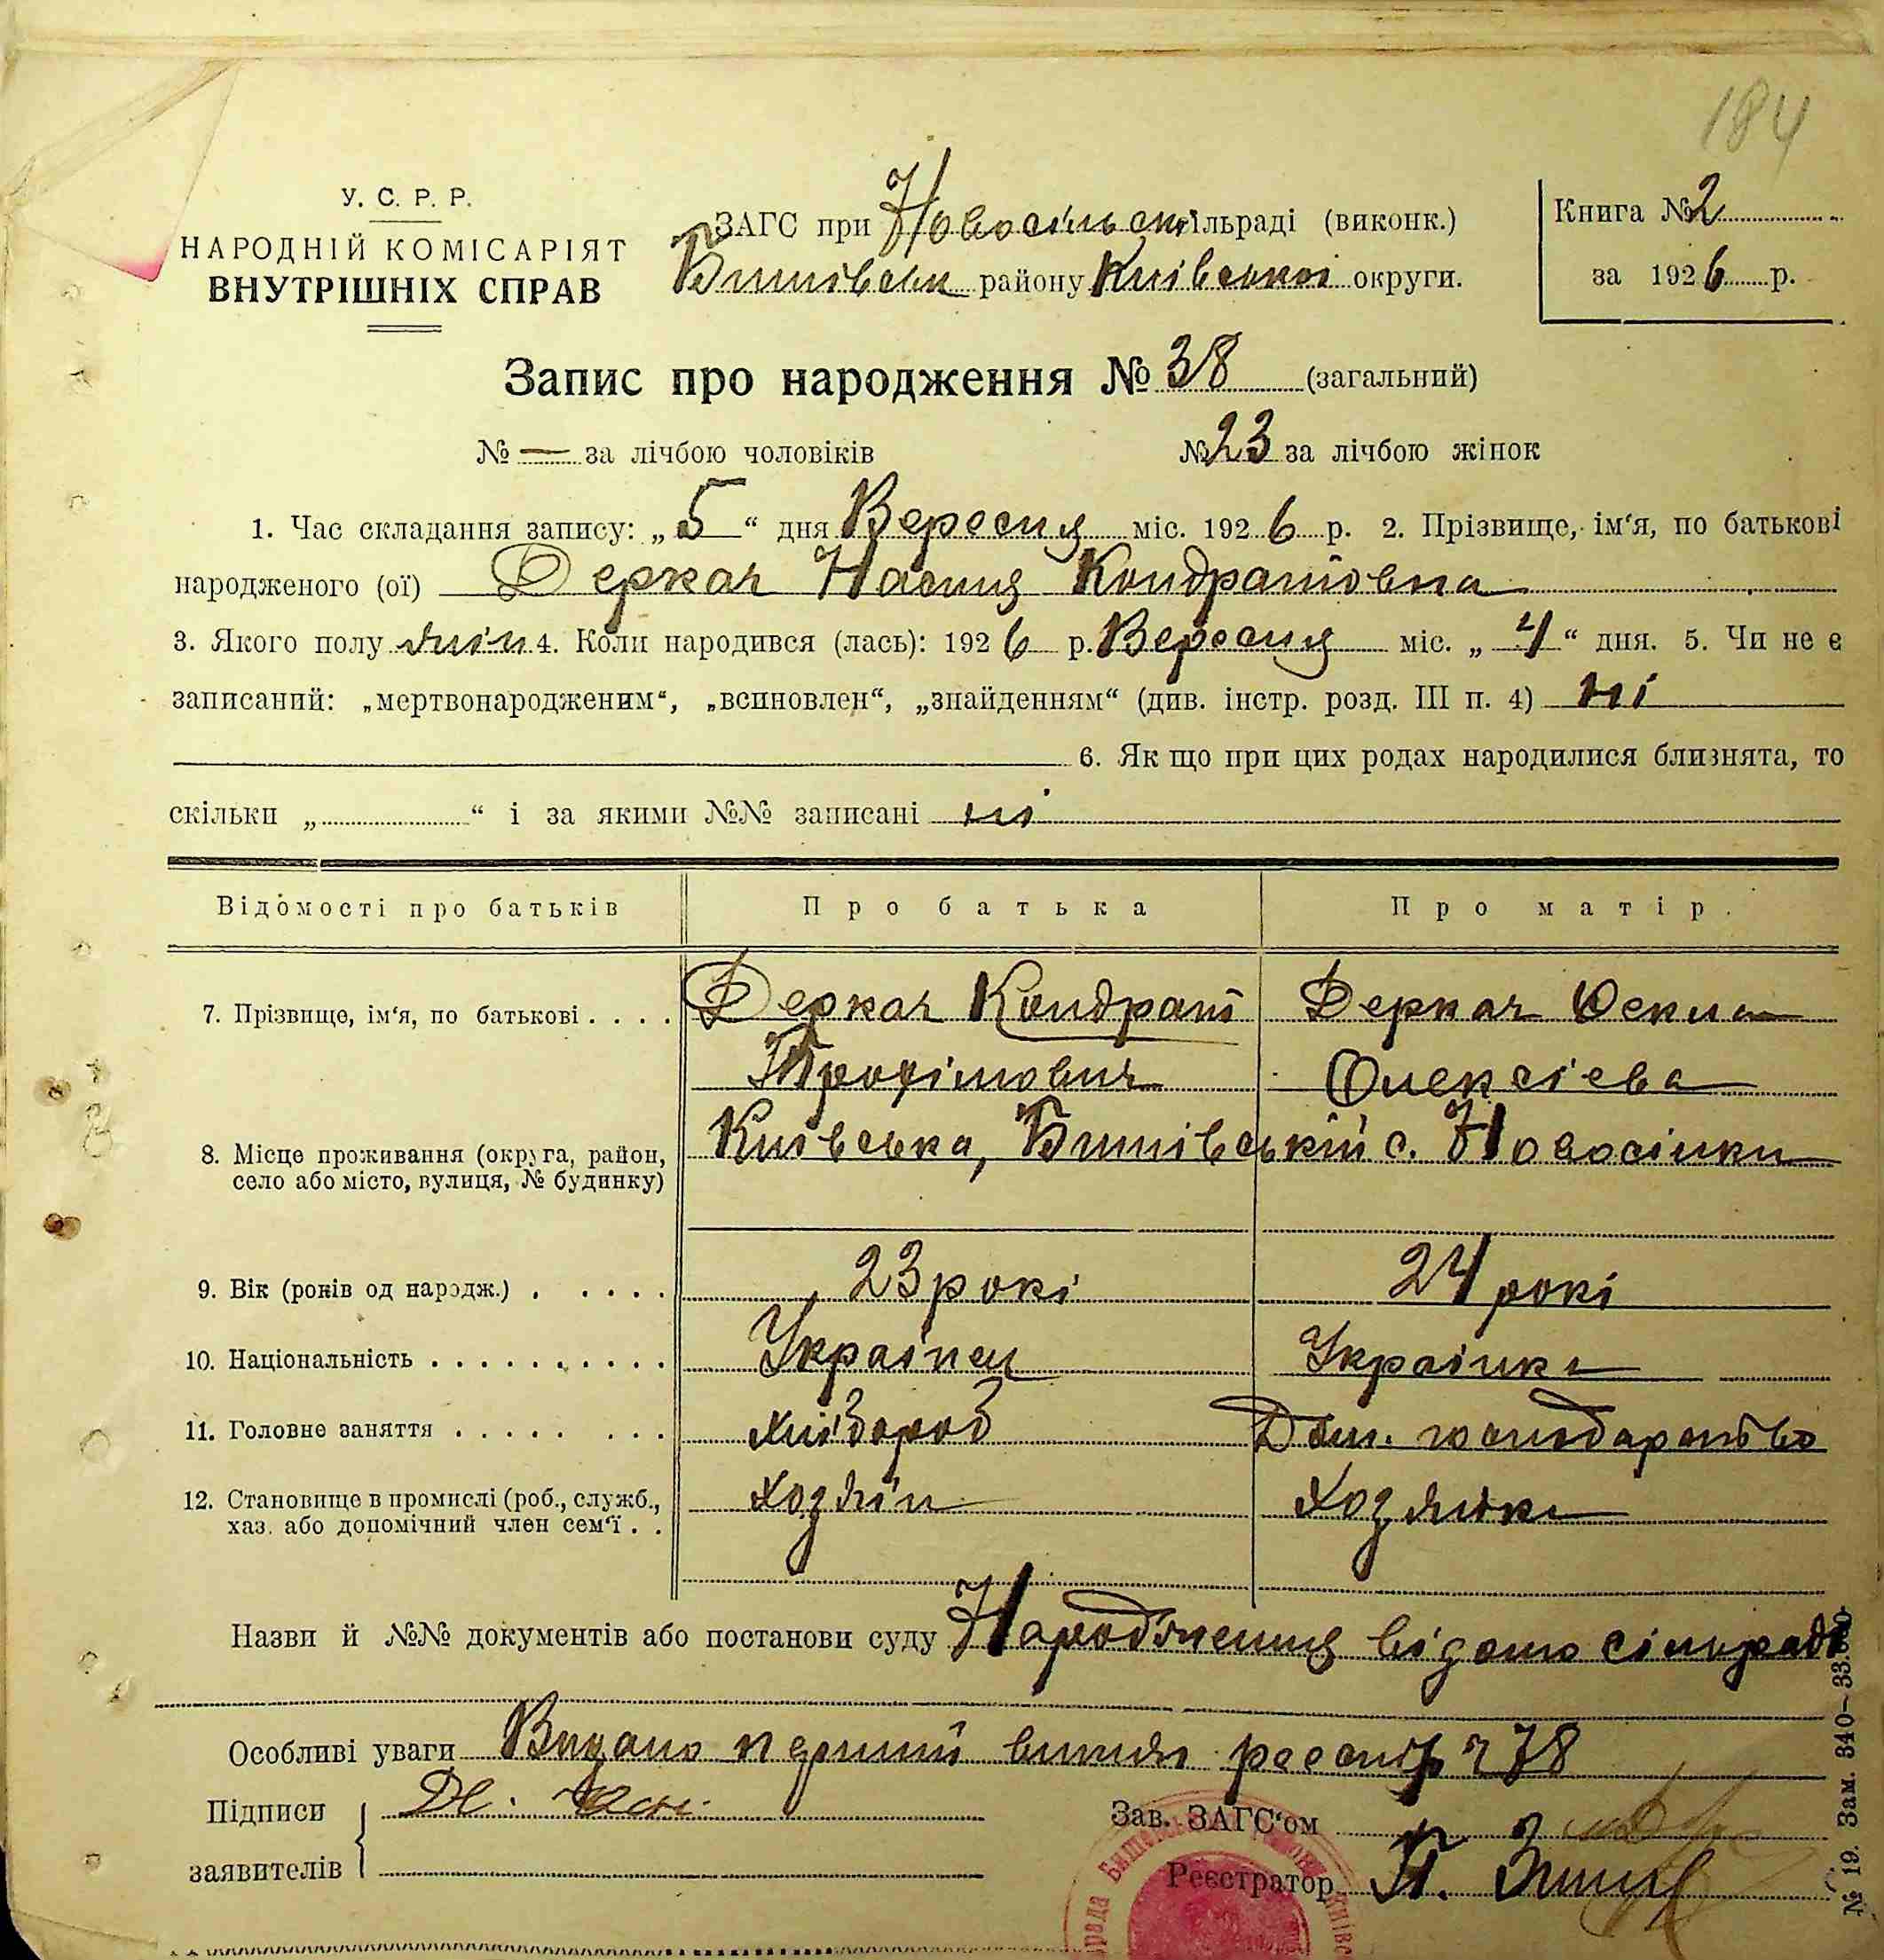 184
У. С. Р. Р.
НАРОДНІЙ КОМІСАРІЯТ
ВНУТРІШНІХ СПРАВ
ЗАГС при Новосільськ сільраді (виконк.)
Бишівськ району Київської округи.
Книга № 2
за 1926 р.
Запис про народження № 38 (загальний)
№ — за лічбою чоловіків № 23 за лічбою жінок
1. Час складання запису: „5“ дня Вересня міс. 1926 р. 2. Прізвище, ім‘я, по батькові
народженого (ої) Деркач Настя Кондратовна
3. Якого полу жін 4. Коли народився (лась): 1926 р. Вересня міс. „4“ дня. 5. Чи не є
записаний: „мертвонародженим“, „всиновлен“, „знайденням“ (див. інстр. розд. III п. 4) ні
6. Як що при цих родах народилися близнята, то
скільки „ “ і за якими №№ записані ні
Відомості про батьків Про батька Про матір.
7. Прізвище, ім‘я, по батькові . . . . Деркач Кондрат Деркач
Трофімович Олексієва
8. Місце проживання (округа, район, Київська, Бишівській с. Новосілки
село або місто, вулиця, № будинку)
9. Вік (років од народж.) . . . . . 23 рокі 24 рокі
10. Національність . . . . . . . . . . Українец Українка
11. Головне заняття . . . . . . . . Хлібороб Дом. господарство
12. Становище в промислі (роб., служб., Хозяін Хозяйка
хаз. або допомічний член сем‘ї . .
Назви й №№ документів або постанови суду Народження відомо сільраді
Особливі уваги Видано перший витяг реестр 78
Підписи
заявителів
Зав. ЗАГС‘ом
Реєстратор П.
№ 19. Зам. 340—33.000